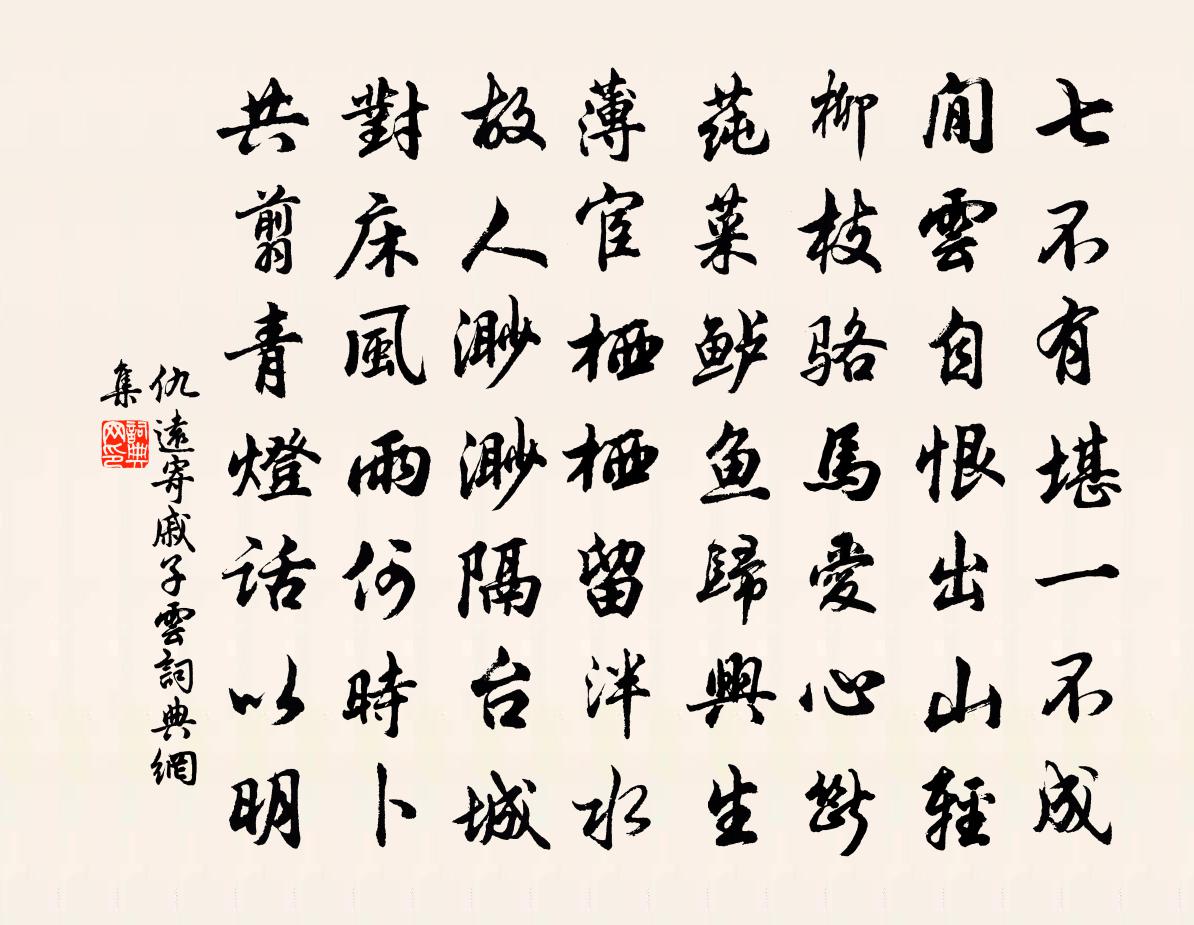 七不有堪一不成
閒雲自恨出山輕
柳枝骆馬愛心斷
莼菜鲈魚歸興生
薄宦栖栖留泮水
故人渺渺隔台城
對床風雨何時卜
共剪青燈話以明
仇遠寄戚子雲詞典網
集
詞典
网印